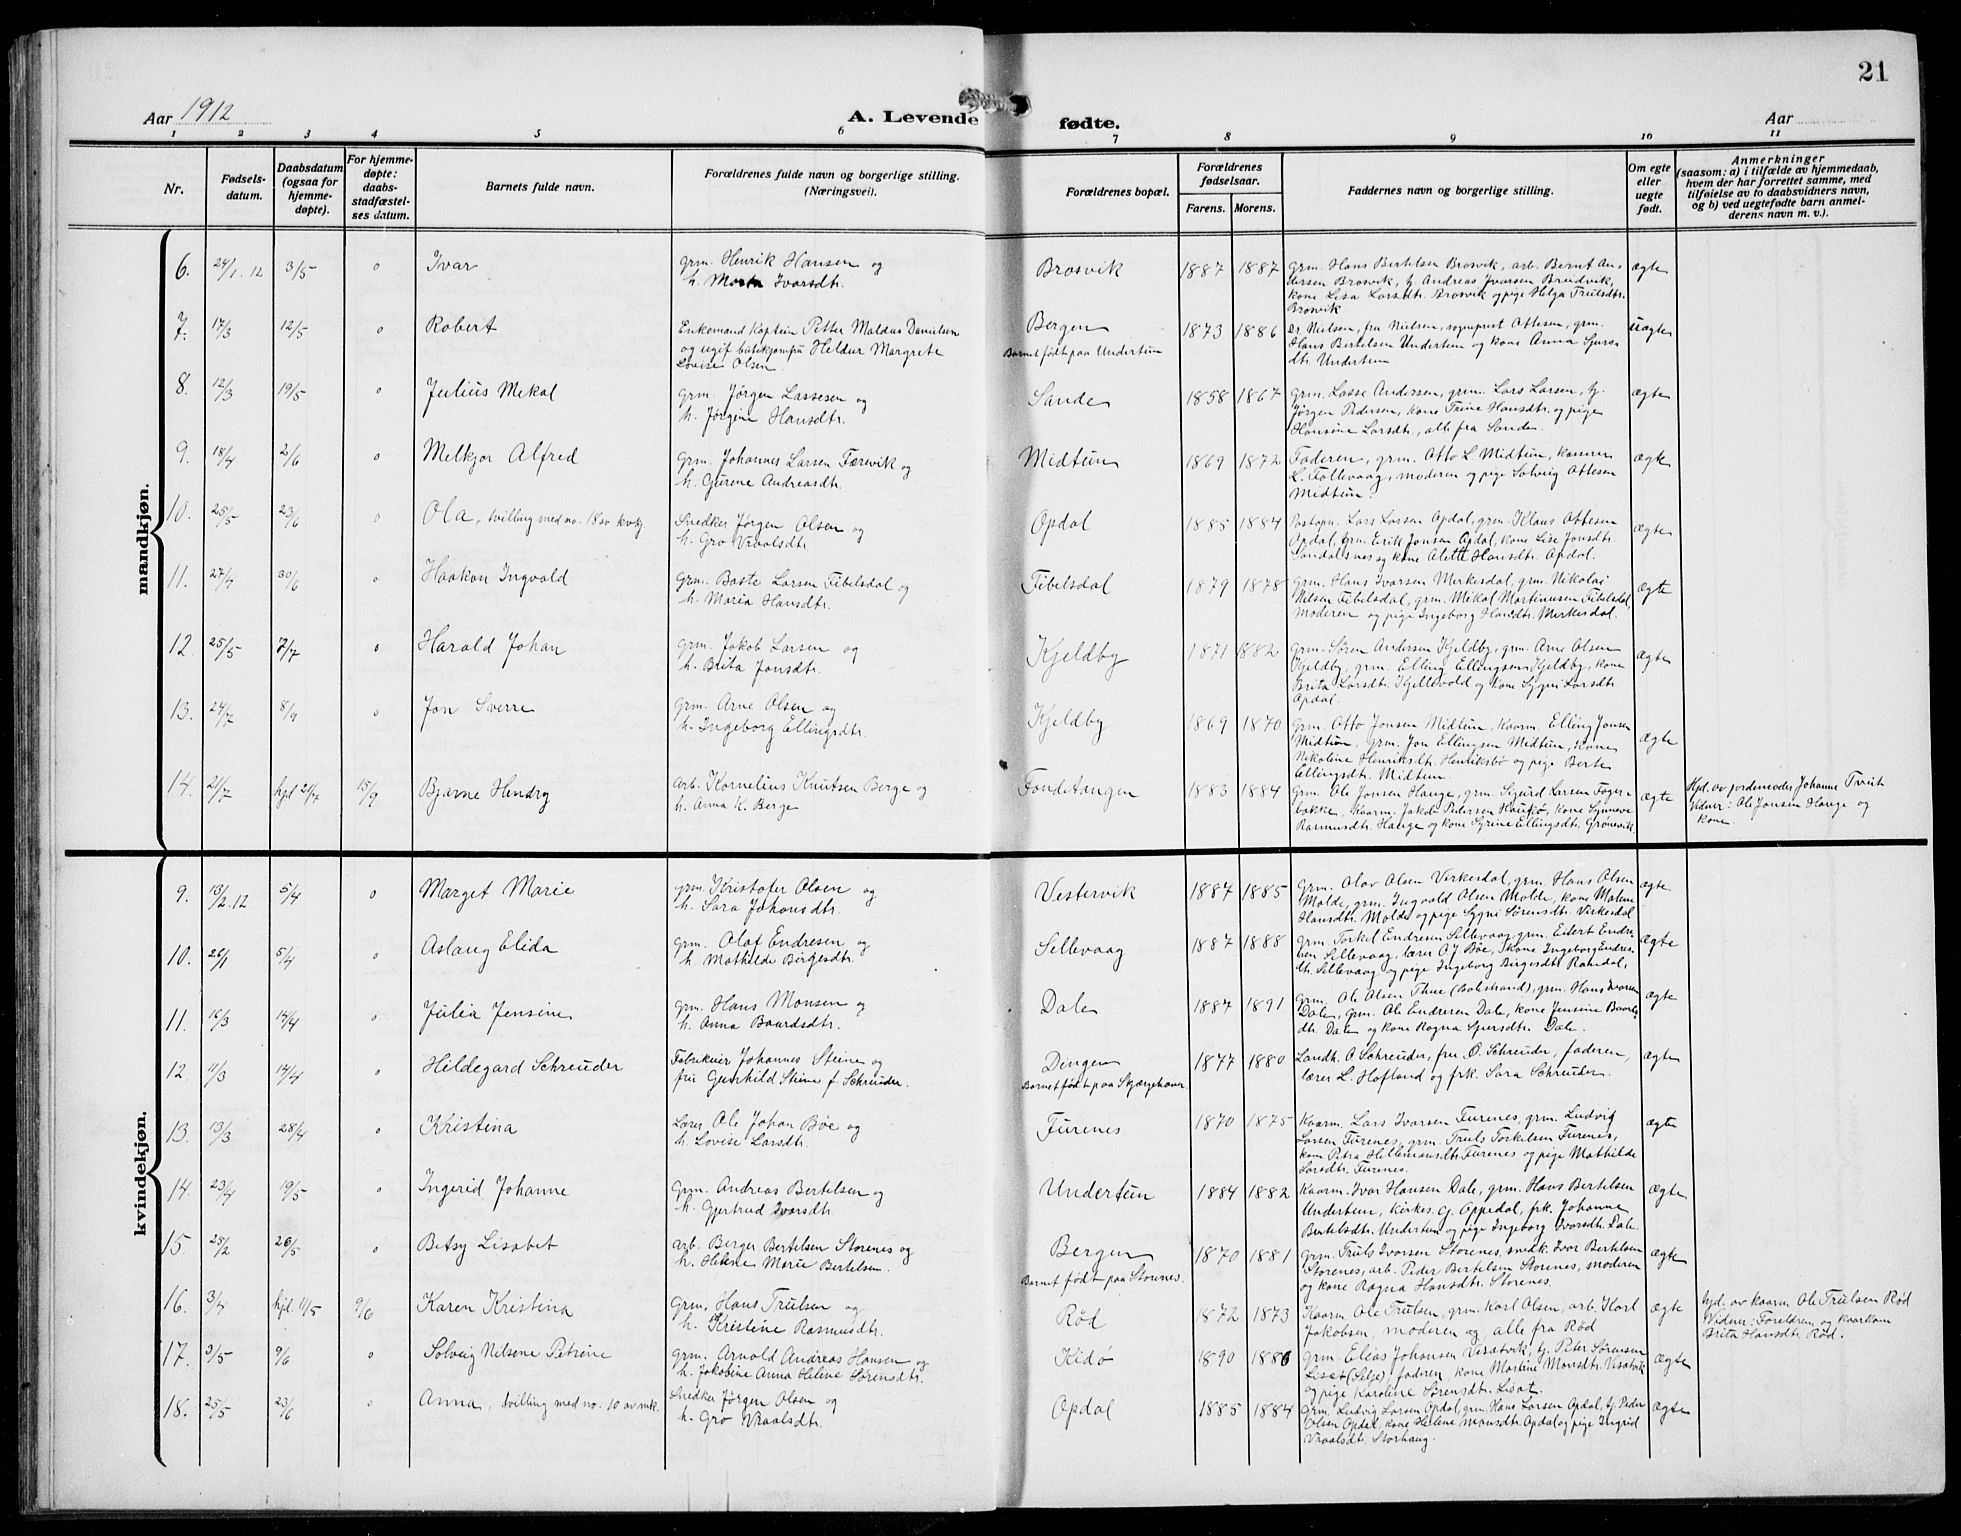 21
Aar 1912
A. Levende fødte.
Aar
1 2 3 4 5 6 7 8 9 10 11
Nr.
Fødsels-
datum.
Daabsdatum
(ogsaa for
hjemme-
døpte).
For hjemme-
døpte:
daabs-
stadfæstel-
ses datum.
Barnets fulde navn.
Forældrenes fulde navn og borgerlige stilling.
(Næringsvei).
Forældrenes bopæl.
Forældrenes
fødselsaar.
Farens. Morens.
Faddernes navn og borgerlige stilling.
Om egte
eller
uegte
født.
Anmerkninger
(saasom: a) i tilfælde av hjemmedaab,
hvem der har forrettet samme, med
tilføielse av to daabsvidners navn,
og b) ved uegtefødte barn anmel-
derens navn m. v.).
mandkjøn.
6. 24/1.12 3/5 o Ivar
grm. Henrik Hansen og
h. Marta Ivarsdtr.
Brosvik 1887 1887
grm. Hans Bertelsen Brosvik, arb. Bernt An-
dersen Brosvik, tj. Andreas Ivarsen Brudvik,
kone Lisa Larsdtr. Brosvik og pige Helga Trulsdtr.
Brosvik
ægte
7. 17/3 12/5 o Robert
Enkemand Kaptein Petter Maldus Danielsen
og ugif. butikjomfru Heldur Margrete
Lovise Olsen.
Bergen
Barnet født paa Undertun
1873 1886
Dr. Nielsen, fru Nielsen, sogneprest Ottesen, grm.
Hans Bertelsen Undertun og kone Anna Sjurs-
dtr. Undertun
uægte
8. 12/3 19/5 o Julius Mekal
grm. Jørgen Lassesen og
h. Jørgine Hansdtr.
Sande 1858 1867
grm. Lasse Andersen, grm. Lars Larsen, tj.
Jørgen Pedersen, kone Trine Hansdtr. og pige
Hansine Larsdtr., alle fra Sande.
ægte
9. 18/4 2/6 o Melkjor Alfred
grm. Johannes Larsen Færevik og
h. Gurene Andreasdtr.
Midtun 1869 1872
Faderen, grm. Otto L. Midtun, kasserer
L. Follevaag, moderen og pige Solveig Ottesen
Midtun.
ægte
10. 25/5 23/6 o Ola, tvilling med no. 18 av kvkj.
Snedker Jørgen Olsen og
h. Gro Vraalsdtr.
Opdal 1885 1884
Postopn. Lars Larsen Opdal, grm. Klaus Ottesen
Opdal, grm. Erik Jonsen Opdal, kone Lise Jonsdtr.
Sandalsnes og kone Alette Hansdtr. Opdal.
ægte
11. 27/4 30/6 o Haakon Ingvald
Grm. Baste Larsen Fibelsdal og
h. Maria Hansdtr.
Fibelsdal 1879 1878
Grm. Hans Ivarsen Merkesdal, grm. Nikolai
Nilsen Fibelsdal, grm. Mikal Martinusen Fibelsdal,
moderen og pige Ingeborg Hansdtr. Merkesdal.
ægte
12. 25/5 7/7 o Harald Johan
grm. Jakob Larsen og
h. Brita Jonsdtr.
Kjeldby 1871 1882
Grm. Søren Andersen Kjeldby, grm. Arne Olsen
Kjeldby, grm. Elling Ellingsen Kjeldby, kone
Brita Larsdtr. Kjellevold og kone Sygni Larsdtr.
Opdal.
ægte
13. 24/7 8/9 o Jon Sverre
grm. Arne Olsen og
h. Ingeborg Ellingsdtr.
Kjeldby 1869 1870
Grm. Otto Jonsen Midtun, kaarm. Elling Jonsen
Midtun, grm. Jon Ellingsen Midtun, kone
Nikoline Henriksdt. Henriksbø og pige Berte
Ellingsdtr. Midtun
ægte
14. 21/7 hjd 21/7 15/9 Bjarne Hendry
arb. Kornelius Knutsen Berge og
h. Anna K. Berge
Fondetangen 1883 1884
Grm. Ole Jonsen Hauge, grm. Sigurd Larsen Fager-
bakke, kaarm. Jakob Pedersen Haukø, kone Synneve
Rasmusdtr. Hauge og kone Syrine Ellingsdtr. Grønevik
ægte
Hjd. av jordemoder Johanne Tveit
Vidner: Ole Jonsen Hauge og
kone.
kvindekjøn.
9. 13/2.12 5/4 o Marget Marie
grm. Kristofer Olsen og
h. Sara Johansdtr.
Vestervik 1884 1885
grm. Olav Olsen Virkesdal, grm. Hans Olsen
Molde, grm. Ingvald Olsen Molde, kone Malene
Hansdtr. Molde og pige Sygni Sørensdtr. Virkesdal
ægte
10. 26/1 5/4 o Aslaug Elida
grm. Olaf Endresen og
h. Mathilde Birgesdtr.
Sellevaag 1887 1888
grm Torkel Endresen Sellevaag, grm. Eilert Endre-
sen Sellevaag, lærer O. J. Bøe, kone Ingeborg Endres-
dtr. Sellevaag og pige Ingeborg Birgesdtr. Ramdal,
ægte
11. 16/3 14/4 o Julia Jensine
grm. Hans Monsen og
h. Anna Baardsdtr.
Dale 1887 1891
grm. Ole Olsen Thue (Balestrand), grm. Hans Ivarsen
Dale, grm. Ole Endresen Dale, kone Jensine Baards-
dtr. Dale og kone Ragna Sjursdtr. Dale.
ægte
12. 11/3 14/4 o Hildegard Schreuder
Fabrikeier Johannes Steine og
fru Gunhild Steine f. Schreuder.
Dingen
Barnet født paa Skjærgehavn
1877 1880
Landh. O Schreuder, fru O. Schreuder, faderen,
lærer L. Hofland og frk. Sara Schreuder.
ægte
13. 13/3 28/4 o Kristina
Lærer Ole Johan Bøe og
h. Lovise Larsdtr.
Furenes 1870 1875
Kaarm. Lars Ivarsen Furenes, grm. Ludvig
Larsen Furenes, grm. Truls Torkelsen Furenes,
kone Petra Hellemansdtr. Furenes og pige Mathilde
Larsdtr. Furenes.
ægte
14. 23/4 19/5 o Ingerid Johanne
Grm. Andreas Bertelsen og
h. Gjertrud Ivarsdtr.
Undertun 1884 1882
Kaarm. Ivar Hansen Dale, grm. Hans Bertelsen
Undertun, kirkes. G. Oppedal, frk. Johanne
Bertelsdtr. Undertun og pige Ingeborg Ivarsdtr. Dale.
ægte
15. 25/2 26/5 o Betsy Lisabet
arb. Berger Bertelsen Storenes og
h. Helene Marie Bertelsen.
Bergen
Barnet født paa Storenes.
1870 1881
grm. Truls Ivarsen Storenes, snedk. Ivar Bertelsen
Storenes, arb. Peder Bertelsen Storenes, moderen
og kone Ragna Hansdtr. Storenes.
ægte
16. 3/4 hjd. 11/5 9/6 Karen Kristina
Grm. Hans Trulsen og
h. Kristine Rasmusdtr.
Rød 1872 1873
Kaarm Ole Trulsen, grm. Karl Olsen, arb. Karl
Jakobsen, moderen og alle fra Rød
ægte
hjd. av kaarm Ole Trulsen Rød
Vidner: Foreldren og kaarkone
Brita Hansdtr. Rød.
17. 3/5 9/6 o Solveig Nilsene Petrine
grm. Arnold Andreas Hansen og
h. Jakobine Anna Helene Sørensdtr.
Kidø 1890 1886
grm. Elias Johansen Visatvik, tj. Peter Sørensen
Liset (Selje), faderen, kone Martine Monsdtr. Visatvik
og pige Karoline Sørensdtr. Liset.
ægte
18. 25/5 23/6 o Anna, tvilling med no. 10 av mk.
Snedker Jørgen Olsen og
h. Gro Vraalsdtr.
Opdal 1885 1884
Grm. Ludvig Larsen Opdal, grm. Hans Larsen Opdal, tj. Peder
Olsen Opdal, kone Helene Monsdtr. Opdal og pige Ingrid
Vraalsdtr. Storhaug.
ægte